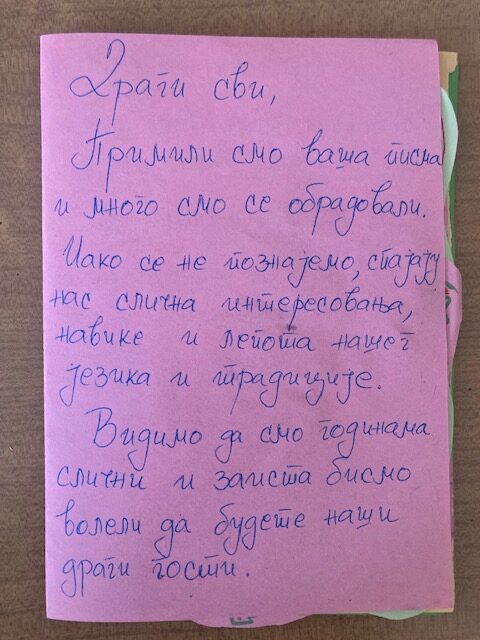 Драги сви,
Примили смо ваша писма
и много смо се обрадовали.
Иако се не познајемо, спајају
нас слична интересовања,
навике и лепота нашег
језика и традиције.
Видимо да смо годинама
слични и заиста бисмо
волели да будете наши
драги гости.